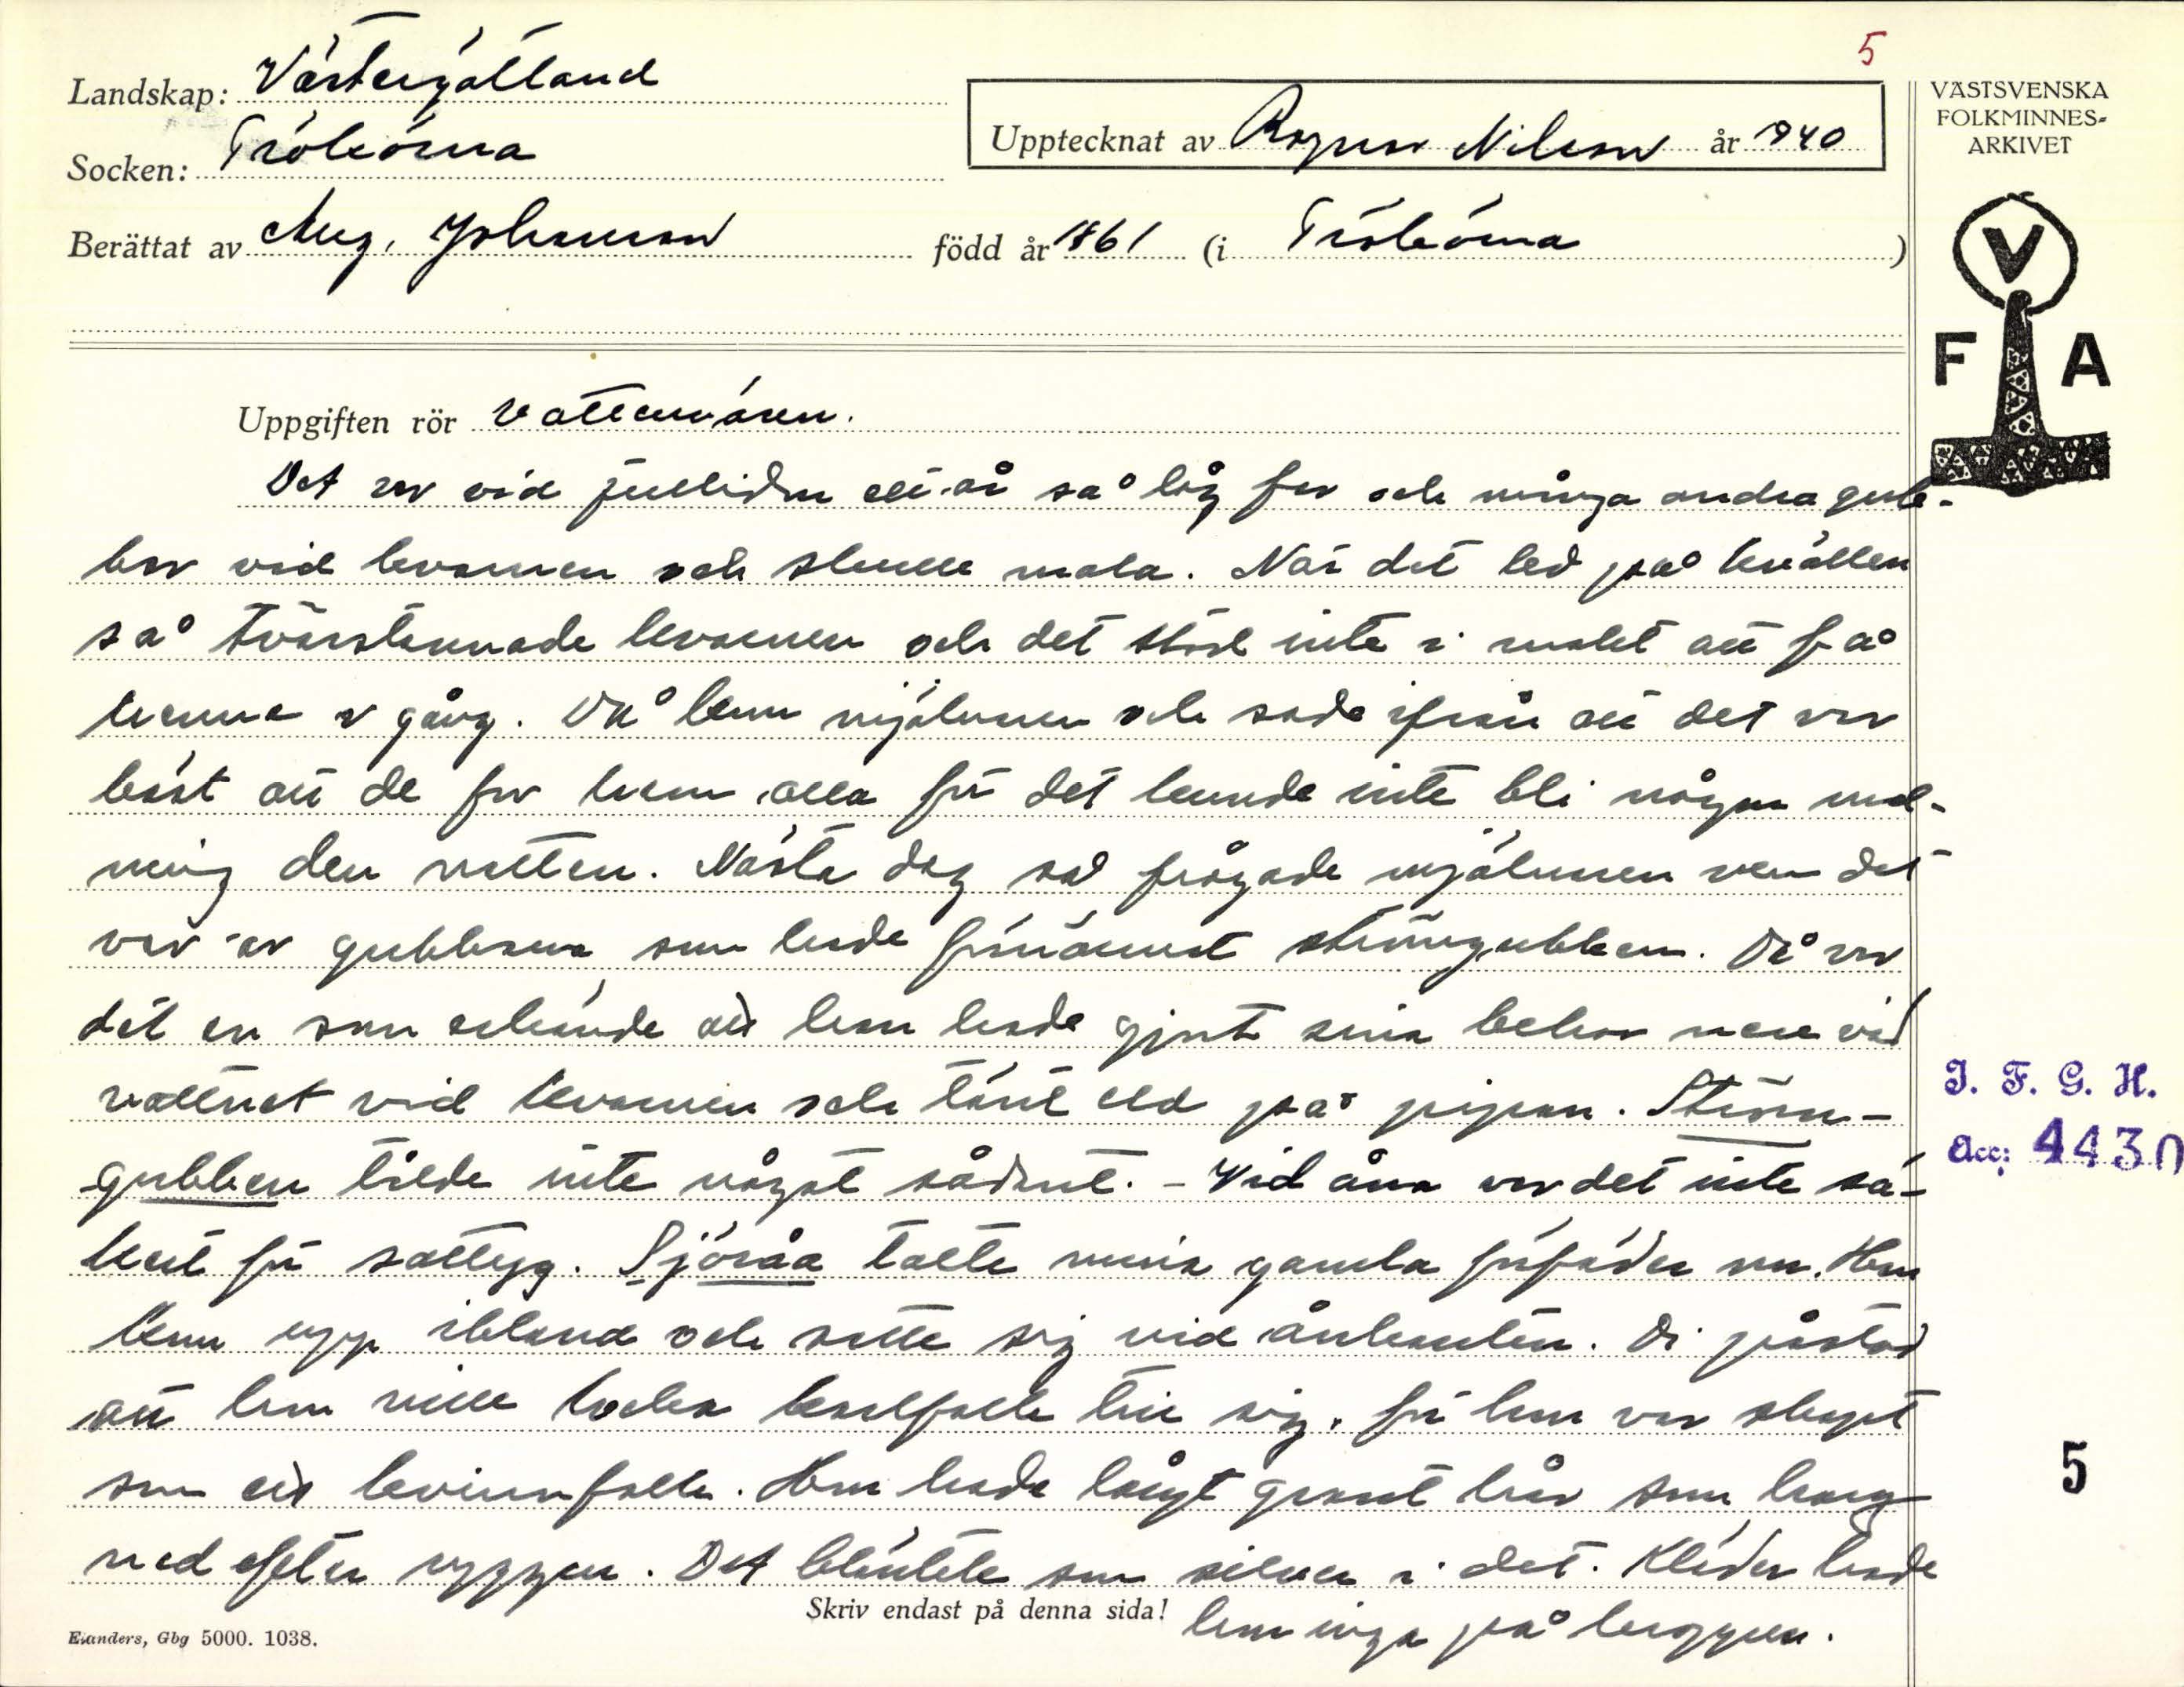 5
Landskap: Västergötland
Socken: Tråvad
Upptecknat av Ragnar Nilsson år 1940
VÄSTSVENSKA
FOLKMINNES-
ARKIVET
Berättat av Aug. Johansson född år 1861 (i )
V
F A
Uppgiften rör Vattenväsen.
Det var vid jultiden att så låg far och många andra gub-
bar vid kvarnen och skulle mala. När det led på kvällen
så tvärstannade kvarnen och det stod inte i målet att få
henne i gång. Då kom mjölnaren och sade ifrån att det var
bäst att de for hem alla för det kunde inte bli någon mal-
ning den natten. Nästa dag så frågade mjölnaren vem det
var av gubbarna som hade förnärmat strömgubben. Då var
det en som erkände att han hade gjort sina behov nere vid
vattnet vid kvarnen och tänt eld på pipan. Ström-
gubben tålde inte något sådant. - Vid åna var det inte sä-
kert för sattyg. Sjöråa talte mina gamla förfäder om. Hon
kom upp ibland och satte sig vid åakanten. Di påstod
att hon ville locka karlfolk till sig, för hon var skapt
som ett kvinnfolk. Hon hade långt grant hår som hang
ned efter ryggen. Det blänkte som silver i det. Kläder hade
hon inga på kroppen.
Skriv endast på denna sida!
Elanders, Gbg 5000. 1038.
I. F. G. H.
Acc: 4430
5